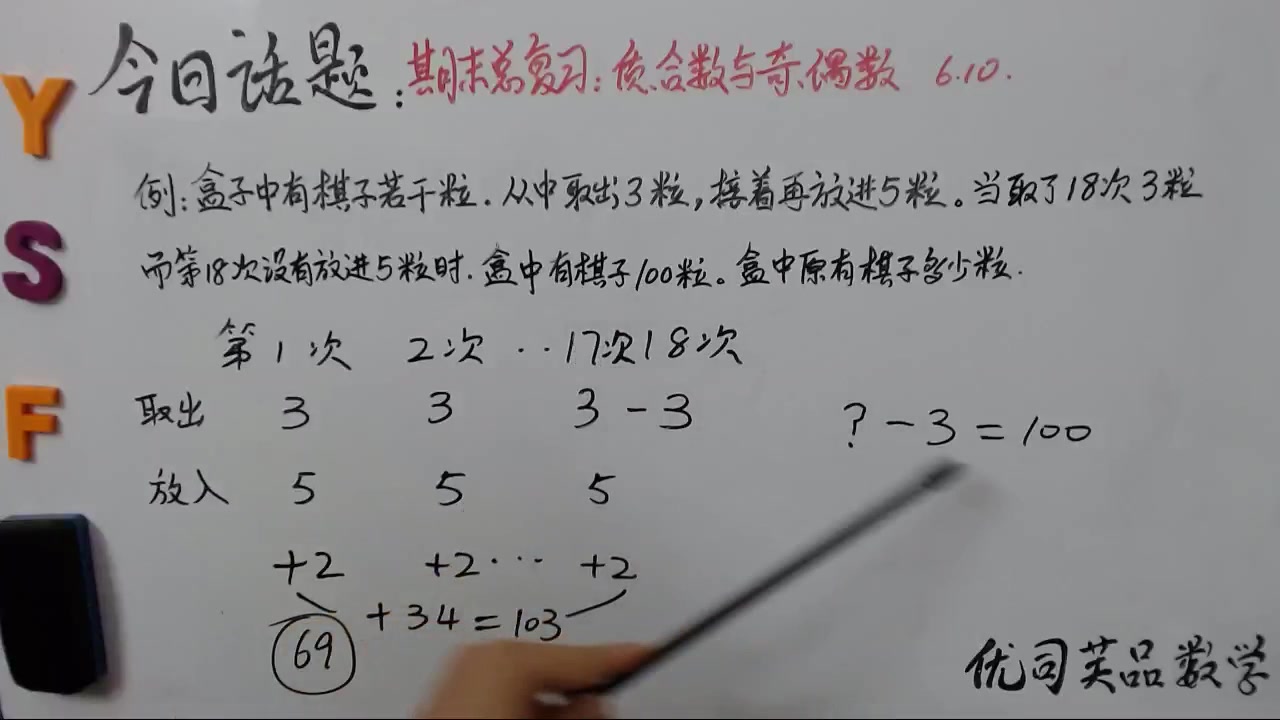 今日话题:期末总复习:质合数与奇偶数 6.10.
例:盒子中有棋子若干粒.从中取出3粒,接着再放进5粒。当取了18次3粒
而第18次没有放进5粒时.盒中有棋子100粒。盒中原有棋子多少粒.
第1次 2次 ··17次18次
取出 3 3 3 - 3
? - 3 = 100
放入 5 5 5
+2 +2 ··· +2
69 + 34 = 103
优司英品数学
Y
S
F